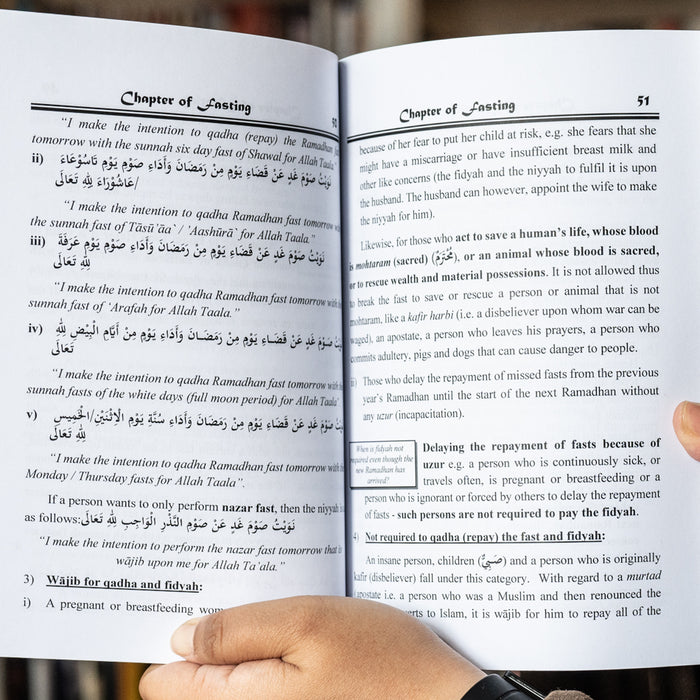 Chapter of Fasting
50
"I make the intention to qadha (repay) the Ramadhan
tomorrow with the sunnah six day fast of Shawal for Allah Taala"
ii) نَوَيْتُ صَوْمَ غَدٍ عَنْ قَضَاءِ يَوْمٍ مِنْ رَمَضَانَ وَأَدَاءِ صَوْمِ يَوْمِ تَاسُوْعَاءَ
/عَاشُوْرَاءَ لِلّٰهِ تَعَالَى
"I make the intention to qadha Ramadhan fast tomorrow with
the sunnah fast of Tāsū'āa' / 'Aashūrā' for Allah Taala."
iii) نَوَيْتُ صَوْمَ غَدٍ عَنْ قَضَاءِ يَوْمٍ مِنْ رَمَضَانَ وَأَدَاءِ صَوْمِ يَوْمِ عَرَفَةَ
لِلّٰهِ تَعَالَى
"I make the intention to qadha Ramadhan fast tomorrow with the
sunnah fast of 'Arafah for Allah Taala."
iv) صَوْمَ غَدٍ عَنْ قَضَاءِ يَوْمٍ مِنْ رَمَضَانَ وَأَدَاءِ يَوْمٍ مِنْ أَيَّامِ الْبِيْضِ لِلّٰهِ
تَعَالَى
"I make the intention to qadha Ramadhan fast tomorrow with the
sunnah fasts of the white days (full moon period) for Allah Taala"
v) صَوْمَ غَدٍ عَنْ قَضَاءِ يَوْمٍ مِنْ رَمَضَانَ وَأَدَاءِ سُنَّةِ يَوْمِ الْاِثْنَيْنِ/الْخَمِيْسِ
لِلّٰهِ تَعَالَى
"I make the intention to qadha Ramadhan fast tomorrow with the
Monday / Thursday fasts for Allah Taala".
If a person wants to only perform nazar fast, then the niyyah is
as follows: نَوَيْتُ صَوْمَ غَدٍ عَنْ صَوْمِ النَّذْرِ الْوَاجِبِ لِلّٰهِ تَعَالَى
"I make the intention to perform the nazar fast tomorrow that is
wājib upon me for Allah Ta'ala."
3) Wājib for qadha and fidyah:
i) A pregnant or breastfeeding
Chapter of Fasting
51
because of her fear to put her child at risk, e.g. she fears that she
might have a miscarriage or have insufficient breast milk and
other like concerns (the fidyah and the niyyah to fulfil it is upon
the husband. The husband can however, appoint the wife to make
the niyyah for him).
Likewise, for those who act to save a human's life, whose blood
is mohtaram (sacred) (مُحْتَرَمٌ), or an animal whose blood is sacred,
or to rescue wealth and material possessions. It is not allowed thus
to break the fast to save or rescue a person or animal that is not
mohtaram, like a kafir harbi (i.e. a disbeliever upon whom war can be
waged), an apostate, a person who leaves his prayers, a person who
commits adultery, pigs and dogs that can cause danger to people.
ii) Those who delay the repayment of missed fasts from the previous
year's Ramadhan until the start of the next Ramadhan without
any uzur (incapacitation).
When is fidyah not
required even though the
new Ramadhan has
arrived?
Delaying the repayment of fasts because of
uzur e.g. a person who is continuously sick, or
travels often, is pregnant or breastfeeding or a
person who is ignorant or forced by others to delay the repayment
of fasts - such persons are not required to pay the fidyah.
4) Not required to qadha (repay) the fast and fidyah:
An insane person, children (صَبِيٌّ) and a person who is originally
kafir (disbeliever) fall under this category. With regard to a murtad
(apostate i.e. a person who was a Muslim and then renounced the
to Islam, it is wājib for him to repay all of the